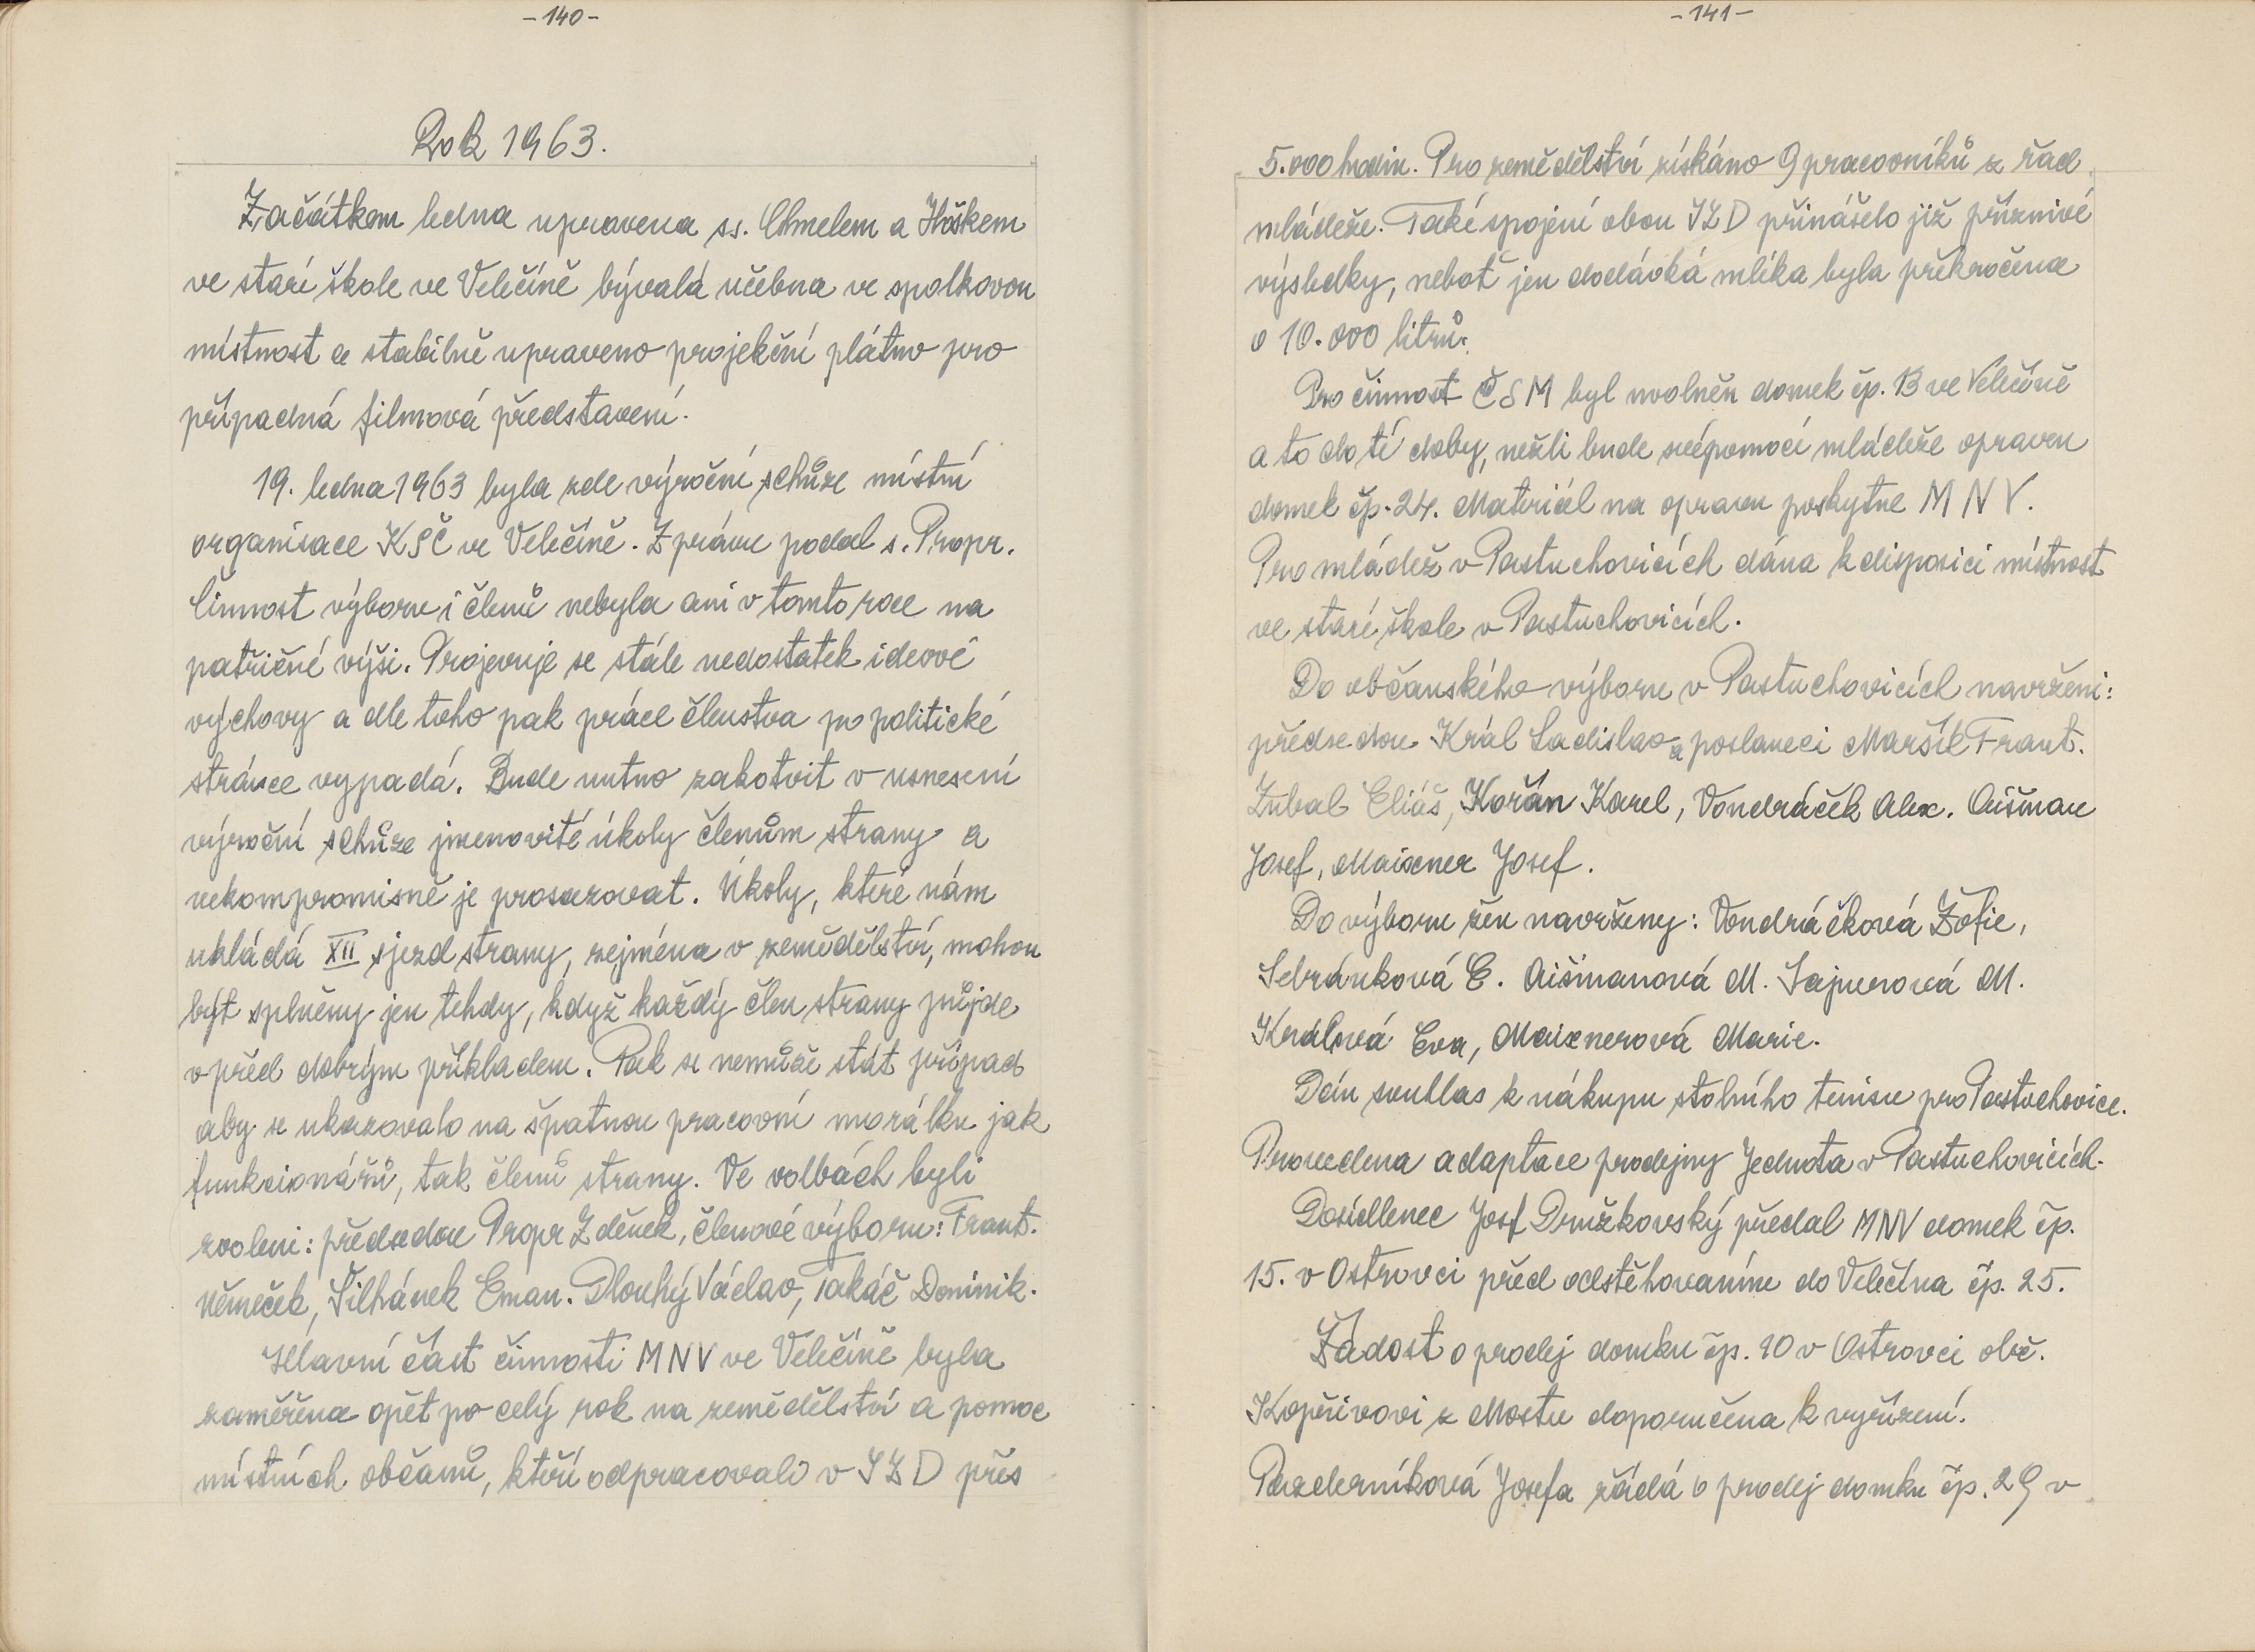 -140-
Rok 1963.
Začátkem ledna upravena ss. Chmelem a Hoškem
ve staré škole ve Velečíně bývalá učebna ve spolkovou
místnost a stabilně upraveno projekční plátno pro
případná filmová představení.
19. ledna 1963 byla zde výroční schůze místní
organisace KSČ ve Velečíně. Zprávu podal s. Propr.
Činnost výboru i členů nebyla ani v tomto roce na
patřičné výši. Projevuje se stále nedostatek ideové
výchovy a dle toho pak práce členstva po politické
stránce vypadá. Bude nutno zakotvit v usnesení
výroční schůze jmenovité úkoly členům strany a
nekompromisně je prosazovat. Úkoly, které nám
ukládá XII sjezd strany, zejména v zemědělství, mohou
být splněny jen tehdy, když každý člen strany půjde
v před dobrým příkladem. Pak se nemůže stát případ
aby se ukazovalo na špatnou pracovní morálku jak
funkcionářů, tak členů strany. Ve volbách byli
zvoleni: předsedou Propr Zděnek, členové výboru: Frant.
Němeček, Šilhánek Eman. Dlouhý Václav, Takáč Dominik.
Hlavní část činnosti MNV ve Velečíně byla
zaměřena opět po celý rok na zemědělství a pomoc
místních občanů, kteří odpracovali v JZD přes
-141-
5.000 hodin. Pro zemědělství získáno 9 pracovníků z řad
mládeže. Také spojení obou JZD přinášelo již příznivé
výsledky, neboť jen dodávká mléka byla překročena
o 10.000 litrů.
Pro činnost ČSM byl uvolněn domek čp. 13 ve Velečíně
a to do té doby, nežli bude svépomocí mládeže opraven
domek čp. 24. Materiál na opravu poskytne MNV.
Pro mládež v Pastuchovicích dána k disposici místnost
ve staré škole v Pastuchovicích.
Do občanského výboru v Pastuchovicích navrženi:
předsedou Král Ladislav a poslanci Maršík Frant.
Zubal Eliáš, Kořán Karel, Vondráček Alex. Aišman
Josef, Maixner Josef.
Do výboru žen navrženy: Vondráčková Žofie,
Sebránková E. Aišmanová M. Lajnerová M.
Králová Eva, Maixnerová Marie.
Dán souhlas k nákupu stolního tenisu pro Pastuchovice.
Provedena adaptace prodejny Jednota v Pastuchovicích.
Dosídlenec Josef Družkovský předal MNV domek čp.
15. v Ostrovci před odstěhováním do Velečína čp. 25.
Žádost o prodej domku čp. 10 v Ostrovci obč.
Kopřivovi z Mostu doporučena k vyřízení.
Pazderníková Josefa žádá o prodej domku čp. 29 v